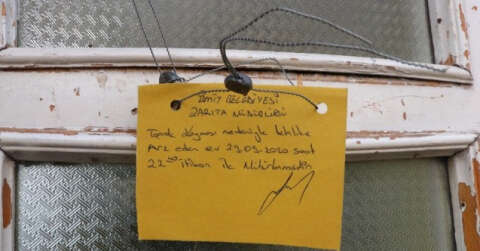 İZMİT BELEDİYESİ
ZABITA MÜDÜRLÜĞÜ
nedeniyle tehlike
Arz eden ev 29.09.2020 saat
22:30 itibari ile Mühürlenmiştir